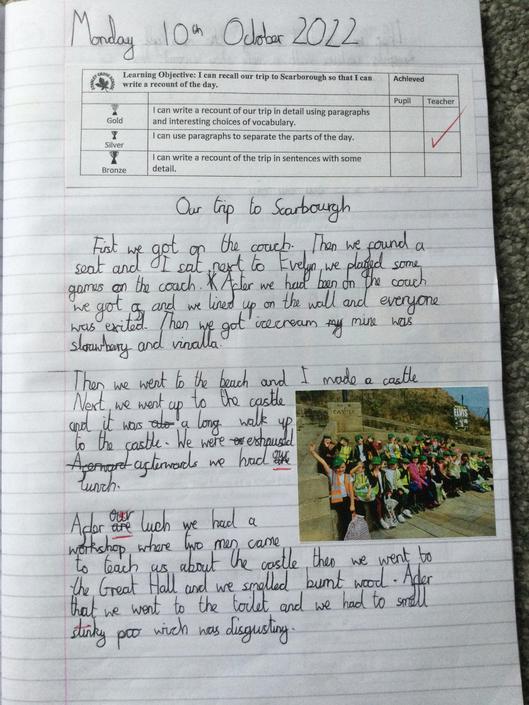 Monday 10th October 2022
Learning Objective: I can recall our trip to Scarborough so that I can write a recount of the day.
Achieved
Pupil Teacher
Gold
I can write a recount of our trip in detail using paragraphs and interesting choices of vocabulary.
Silver
I can use paragraphs to separate the parts of the day.
Bronze
I can write a recount of the trip in sentences with some detail.
Our trip to Scarbourgh
First we got on the couch. Then we found a
seat and I sat next to Evelyn, we played some
games on the couch. After we had been on the couch
we got o and we lined up on the wall and everyone
was exited. Then we got icecream my mine was
strawbery and vinalla.
Then we went to the beach and I made a castle
Next, we went up to the castle
and it was a long walk up
to the castle. We were exhausted
Aferward afterwards we had our
lunch.
After our are luch we had a
workshop where two men came
to teach us about the castle then we went to
the Great Hall and we smelled burnt wood. After
that we went to the toilet and we had to smell
stinky poo wich was disgusting.
CASTLE
ELVIS